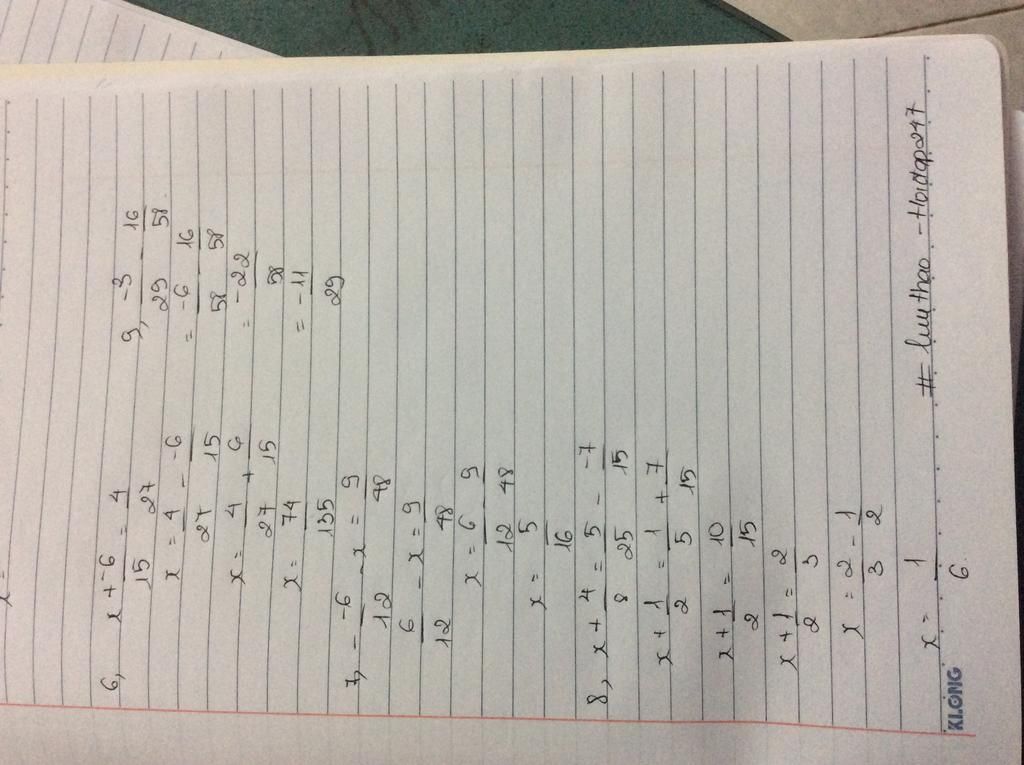 x =
6, x + -6/15 = 4/27
x = 4/27 - -6/15
x = 4/27 + 6/15
x = 74/135
7, - -6/12 - x = 9/48
6/12 - x = 9/48
x = 6/12 - 9/48
x = 5/16
8, x + 4/8 = 5/25 - -7/15
x + 1/2 = 1/5 + 7/15
x + 1/2 = 10/15
x + 1/2 = 2/3
x = 2/3 - 1/2
x = 1/6
9, -3/29 - 16/58
= -6/58 - 16/58
= -22/58
= -11/29
# luuthao - Hoidap247
KLONG